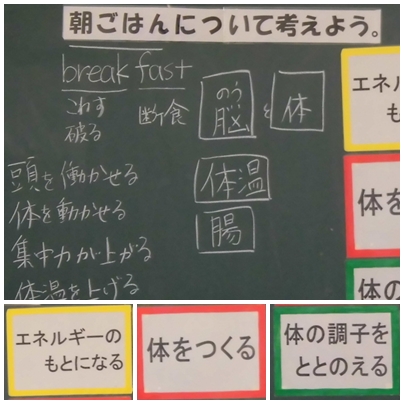 朝ごはんについて考えよう。
break fast
こわす
破る
断食
のう
脳と体
体温
腸
頭を働かせる
体を動かせる
集中力が上がる
体温を上げる
エネル
も
体を
体の
エネルギーの
もとになる
体をつくる
体の調子を
ととのえる